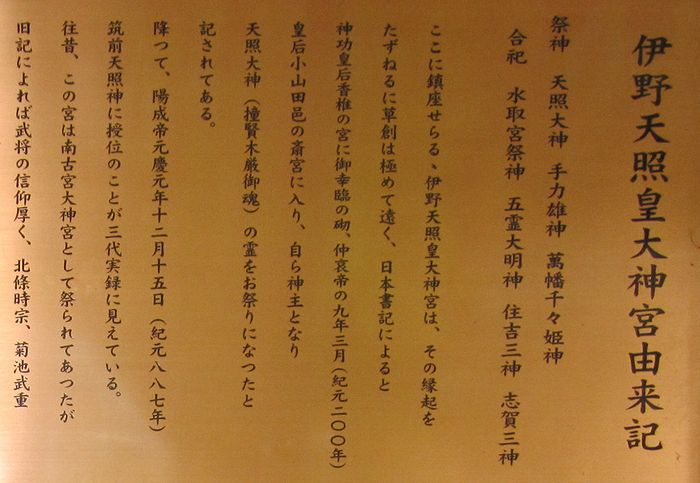 伊野天照皇大神宮由来記
祭神　天照大神　手力雄神　萬幡千々姫神
合祀　水取宮祭神　五霊大明神　住吉三神　志賀三神
ここに鎮座せらるゝ伊野天照皇大神宮は、その縁起を
たずねるに草創は極めて遠く、日本書記によると
神功皇后香椎の宮に御幸臨の砌、仲哀帝の九年三月（紀元二〇〇年）
皇后小山田邑の斎宮に入り、自ら神主となり
天照大神（撞賢木厳御魂）の霊をお祭りになつたと
記されてある。
降つて、陽成帝元慶元年十二月十五日（紀元八八七年）
筑前天照神に授位のことが三代実録に見えている。
往昔、この宮は南古宮大神宮として祭られてあつたが
旧記によれば武将の信仰厚く、北條時宗、菊池武重